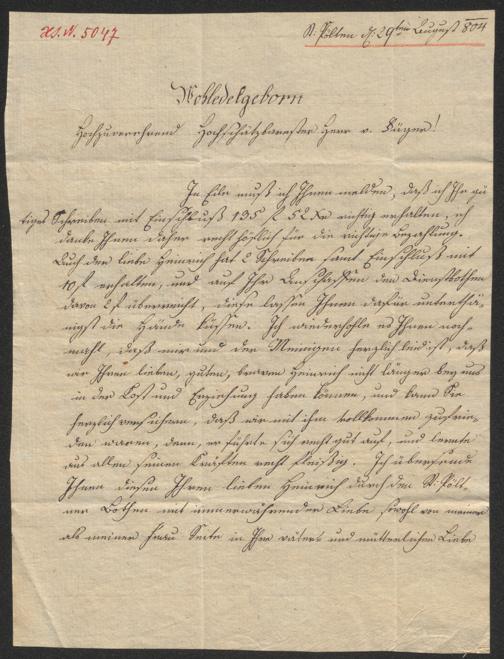 H.I.N. 5047
St: Pölten d: 29ten August 804
Wohledelgeborn
Hochzuverehrend Hochschätzbarester Herr v. Füger!
In Eile muß ich Ihnen melden, daß ich Ihr gü
tiges Schreiben mit Einschluß 135 f 52 Xr richtig erhalten, ich
danke Ihnen daher recht höflich für die richtige bezahlung.
Auch der liebe Heinrich hat 2 Schreiben samt Einschluß mit
10 f erhalten, und auf Ihr Anschaffen den Dienstbothen
davon 2 f überreicht, diese lassen Ihnen dafür unterthä,
nigst die Hände küssen. Ich wiederhohle es Ihnen noch,
mahl, daß mir und den Meinigen herzlich leid ist, daß
wir Ihren lieben, guten, braven Heinrich nicht länger bey uns
in der Kost und Erziehung haben können, und kann Sie
herzlich versichern, daß wir mit ihm vollkommen zufrie,
den waren, denn, er führte sich recht gut auf, und lernte
aus allen seinen Kräften recht fleissig. Ich übersende
Ihnen diesen Ihren lieben Heinrich durch den St: Pölt,
ner Bothen mit immerwährender Liebe sowohl von meiner
als meiner Frau Seite in Ihre väter, und mütterlichen Liebe